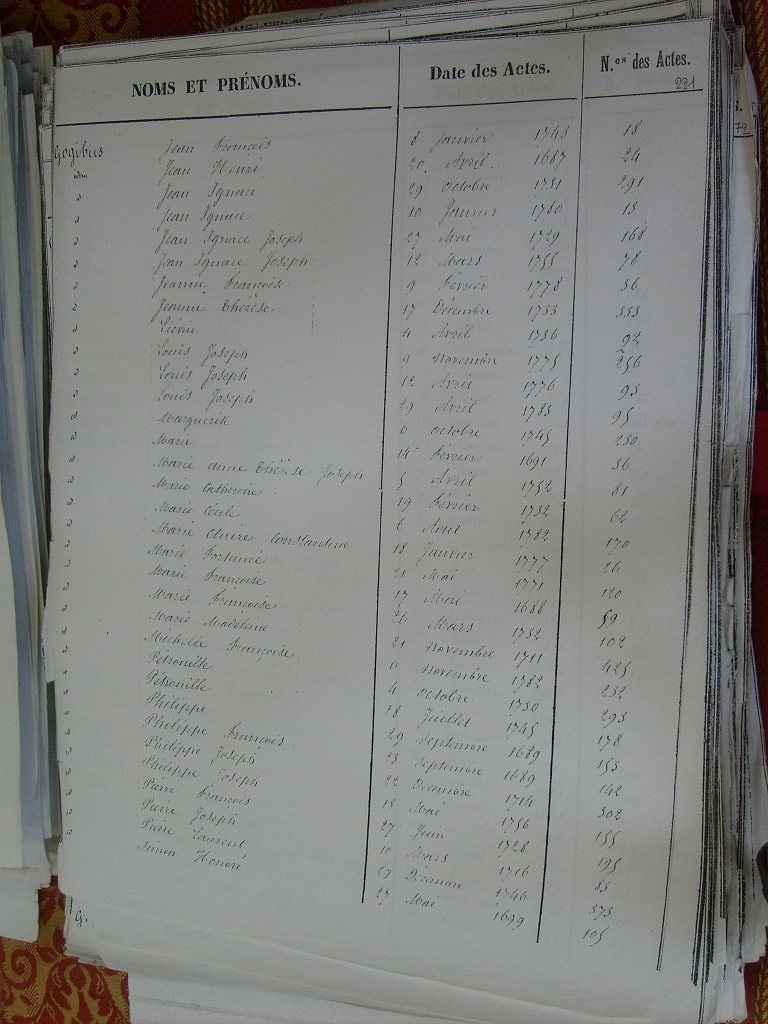 NOMS ET PRÉNOMS. Date des Actes. N.os des Actes.
221
Gogibus Jean François 8 Janvier 1743 18
idem Jean Henri 20 Avril 1687 24
d Jean Ignace 29 octobre 1731 291
d Jean Ignace 10 Janvier 1780 13
d Jean Ignace Joseph 27 Mai 1729 168
d Jean Ignace Joseph 12 Mars 1755 78
d Jeanne Françoise 9 Février 1778 36
d Jeanne Thérèse 17 Décembre 1733 333
d Liévin 4 Avril 1736 92
d Louis Joseph 9 Novembre 1775 256
d Louis Joseph 12 Avril 1776 93
d Louis Joseph 29 Avril 1783 95
d Marguerite 6 octobre 1745 230
d Marie 14 Février 1691 36
d Marie anne Thérèse Joseph 5 Avril 1752 81
d Marie Catherine 19 Février 1732 62
d Marie Cécile 6 Aout 1782 170
d Marie Claire Constantine 18 Janvier 1777 26
d Marie Fortunée 21 Mai 1771 120
d Marie Françoise 17 Mai 1688 59
d Marie Françoise 26 Mars 1732 102
d Marie Madeleine 21 Novembre 1711 425
d Michelle Françoise 6 Novembre 1782 252
d Pétronille 4 octobre 1730 293
d Pétronille 28 Juillet 1745 178
d Philippe 29 Septembre 1689 153
d Philippe François 23 Septembre 1689 142
d Philippe Joseph 22 Décembre 1714 302
d Philippe Joseph 13 Mai 1756 155
d Pierre François 27 Juin 1728 195
d Pierre Joseph 10 Mars 1716 83
d Pierre Laurent 29 Décembre 1746 373
d Simon Honoré 27 Mai 1699 105
G.